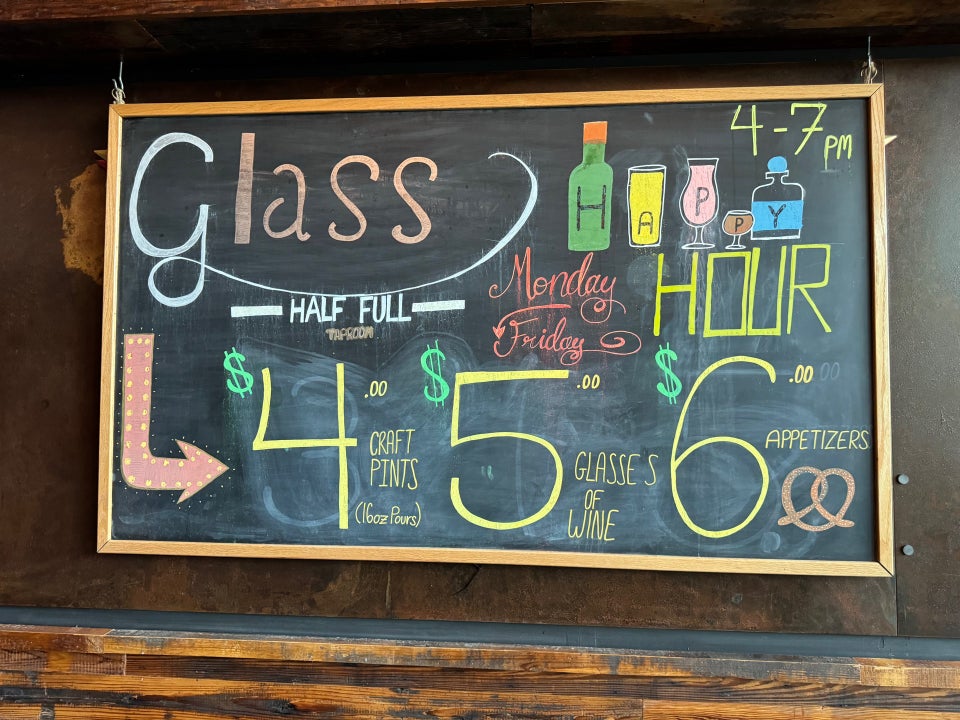 Glass
HALF FULL
TAPROOM
4-7 PM
HAPPY
HOUR
Monday
Friday
$4.00
CRAFT
PINTS
(16oz Pours)
$5.00
GLASSE'S
OF
WINE
$6.00
APPETIZERS